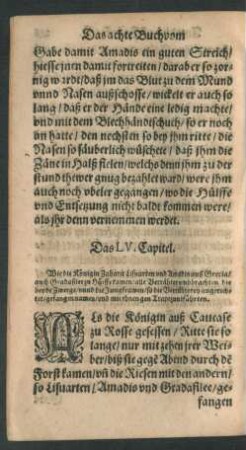 Das achte Buch vom
Gabe damit Amadis ein guten Streich/
hiesse jhn damit fortreiten / darab er so zor-
nig wardt / daß jm das Blut zu dem Mund
vnnd Nasen außschosse / wickelt er auch so
lang / daß er der Hände eine ledig machte/
vnd mit dem Blechhändtschuch / so er noch
an hatte / den nechsten so bey jhm ritte / die
Nasen so säuberlich wüschete / daß jhm die
Zäne in Halß fielen / welchs denn jhm zu der
stund thewer gnug bezahlet ward / were jhm
auch noch vbeler gegangen / wo die Hülffe
vnd Entsetzung nicht baldt kommen were/
als jhr denn vernemmen werdet.
Das LV. Capitel.
Wie die Königin Zahara Lisuarten vnd Amadis auß Grecia/
auch Gradafileen zu Hülffe kamen, alle
beyde Zwerge / vnd die Jungfrauwen, so die
tet / gefangen namen / vnd mit jhnen gen Trapezunt führten.
ALs die Königin auß Caucase
zu Rosse gesessen / Ritte sie so
lange / nur mit zehen jrer Wei-
ber / biß sie gegē Abend durch dē
Forst kamen / vñ die Riesen mit den andern/
so Lisuarten / Amadis vnd Gradafilee / ge-
fangen